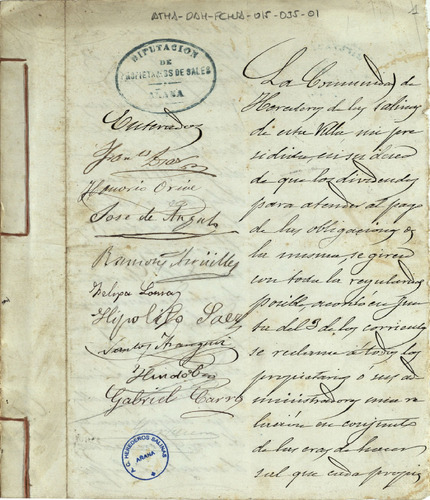 ATHA-DAH-FCHSA-015-035-01
1
DIPUTACION
DE
PROPIETARIOS DE SALES
AÑANA
Enterados
Honorio Orive
Jose de Angulo
Ramon Argüelles
Hipolito Saez
Santos Arangui
Gabriel Carro
T.C. HEREDEROS SALINAS
AÑANA
La Comunidad de
Herederos de las Salinas
de esta Villa mi pre
sidida, en su deseo
de que los dividendos
para atender al pago
de las obligaciones de
la misma, se giren
con toda la regularidad
posible, acordó en jun
ta del 3 de los corrientes
se reclame á todos los
propietarios ó sus ad
ministradores una re
lacion en conjunto
de las eras de hacer
sal que cada propie